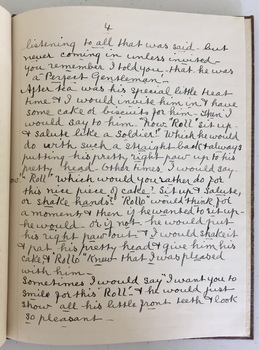 4
listening to all that was said - but
never coming in unless invited -
you remember I told you - that he was
a "Perfect Gentleman".
After tea was his special little treat
time - & I would invite him in - & have
some cake or biscuits for him - then I
would say to him. "Now "Roll" sit up &
Salute like a Soldier". Which he would
do with such a straight back & always
putting his pretty right paw up to his
pretty head. Other times I would say -
"Roll" Which would you rather do for
this nice piece of cake? Sit up & Salute,
or shake hands? "Rollo" would think for
a moment, & then if he wanted to sit up -
he would - or if not - he would just put
his right paw out - & I would shake it
& pat his pretty head & give him his
cake & "Rollo" Knew that I was pleased
with him -
Sometimes I would say "I want you to
smile for this "Roll" - & he would just
show all his little front teeth & look
so pleasant -